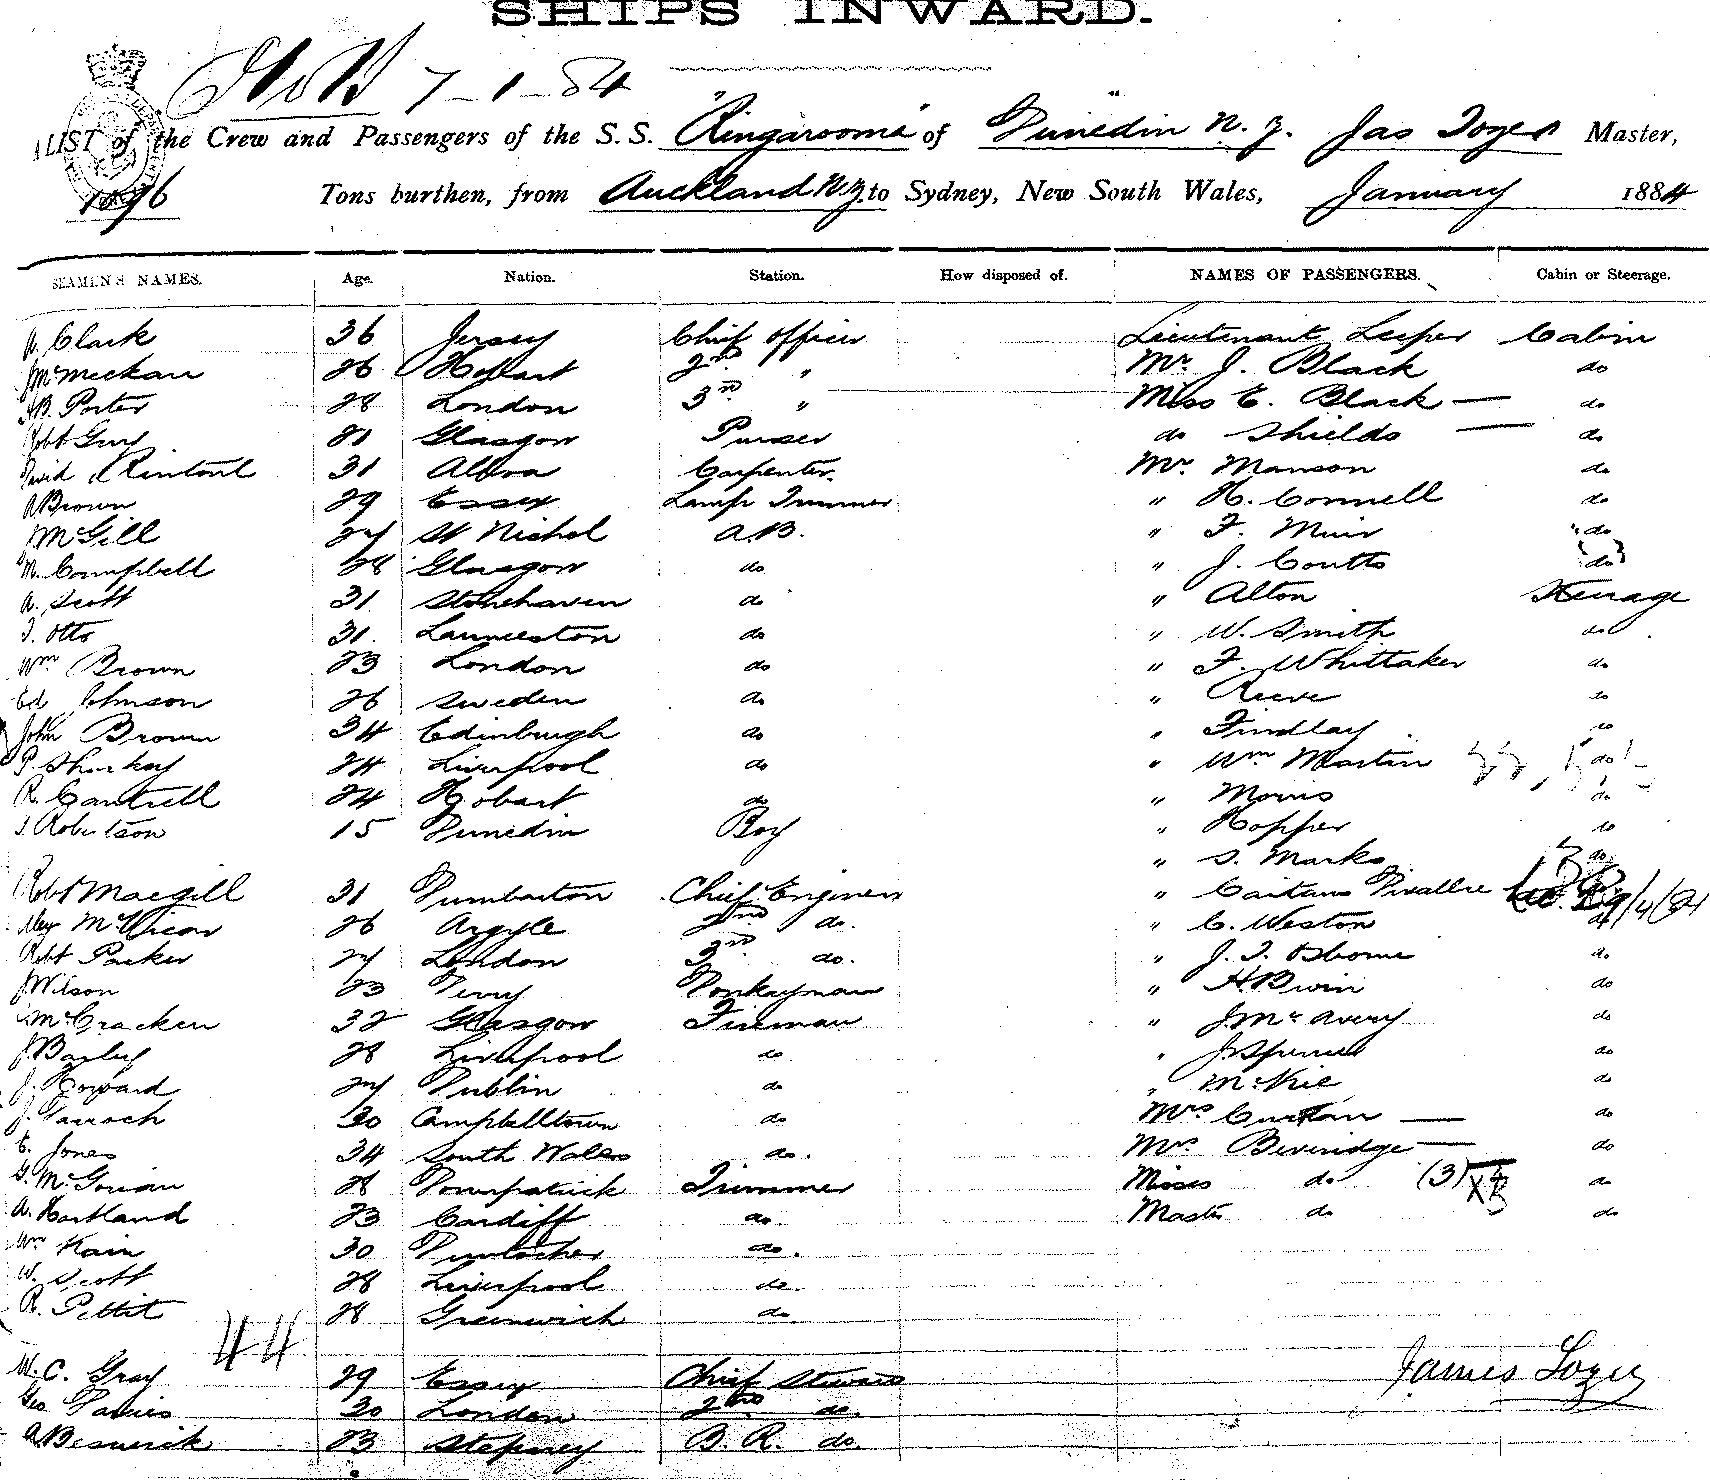 SHIPS INWARD.
7-1-84
LIST of the Crew and Passengers of the S.S. "Ringarooma" of Dunedin N.Z. Jas Tozer Master,
1096 Tons burthen, from Auckland N.Z. to Sydney, New South Wales, January 1884
SEAMEN'S NAMES. Age. Nation. Station. How disposed of. NAMES OF PASSENGERS. Cabin or Steerage.
A. Clark 36 Jersey Chief Officer Lieutenant Leeper Cabin
26 Hobart 2nd " Mr. J. Black do
Porter 28 London 3rd " Miss E. Black — do
Robt Guy 21 Glasgow Purser do Shields — do
David Rintoul 31 Alloa Carpenter. Mr. Manson do
A Brown 29 Essex Lamp Trimmer " H. Connell do
J McGill 27 St Nichol A.B. " F. Muir do
Campbell 28 Glasgow do " J. Coutts do
A. Scott 31 Stonehaven do " Alton Steerage
T. Otto 31. Launceston do " W. Smith do
Wm Brown 23 London do " F. Whittaker do
Ed Johnson 26 Sweden do " Reeve do
John Brown 34 Edinburgh do " Findlay do
P Sharkey 24 Liverpool do " Wm Martin do
R. Cantrell 24 Hobart do " Morris do
Robertson 15 Dunedin Boy " Hopper do
" S. Marks do
Robt Macgill 31 Dumbarton Chief Engineer " Caitano
Alex McVicar 26 Argyle 2nd do. " C. Weston do
Robt Parker 27 London 3rd do. " J. T. Osborne do
J Wilson 23 Derry Donkeyman " do
McCracken 32 Glasgow Fireman " J McAvery do
J Bayley 28 Liverpool do " J Spence do
J. Howard 27 Dublin do " McKie do
J. Darroch 30 Campbelltown do Mrs Curran — do
E. Jones 34 South Wales do. Mrs Beveridge — do
G. McGorian 28 Portpatrick Trimmer Misses do (3) do
A. Hartland 23 Cardiff do. Master do do
Wm Kain 30 do.
W. Scott 28 Liverpool do.
R. Pettit 28 Greenwich do
44
W. C. Gray 29 Essex Chief Steward James Tozer
Geo Davies 30 London 2nd do.
A Beswick 23 Stepney B. R. do.